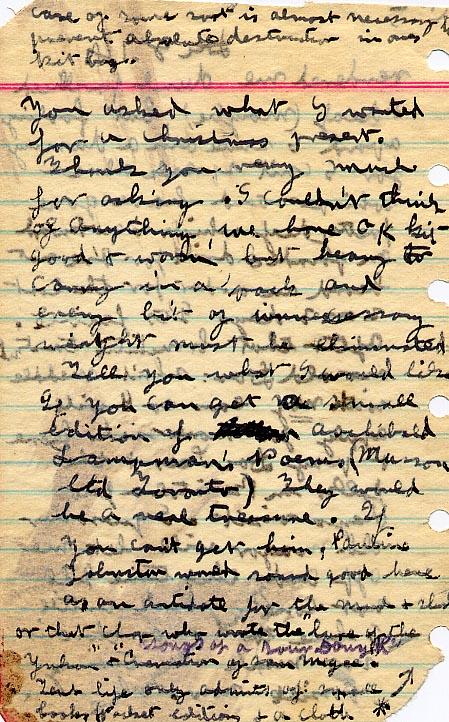 case of some sort is almost necessary to
prevent absolute destruction in ones
kit bag.
You asked what I wanted
for a christmas present.
Thank you very much
for asking. I couldn't think
of anything. we have OK kit
good & warm but heavy to
carry in a pack and
every bit of unnecessary
weight must be eliminated
Tell you what I would like
If you can get a small
edition of Archibald
Lampman's Poems (Musson
Ltd Toronto) They would
be a real treasure. If
you can't get him, Pauline
Johnston would sound good here
as an antidote for the mud &
or that chap who wrote the "lure of the
"Songs of a Sour Dough"
Yukon" & "Cremation of Sam Mcgee".
Tent life only admits of small
books pocket editions & a cloth